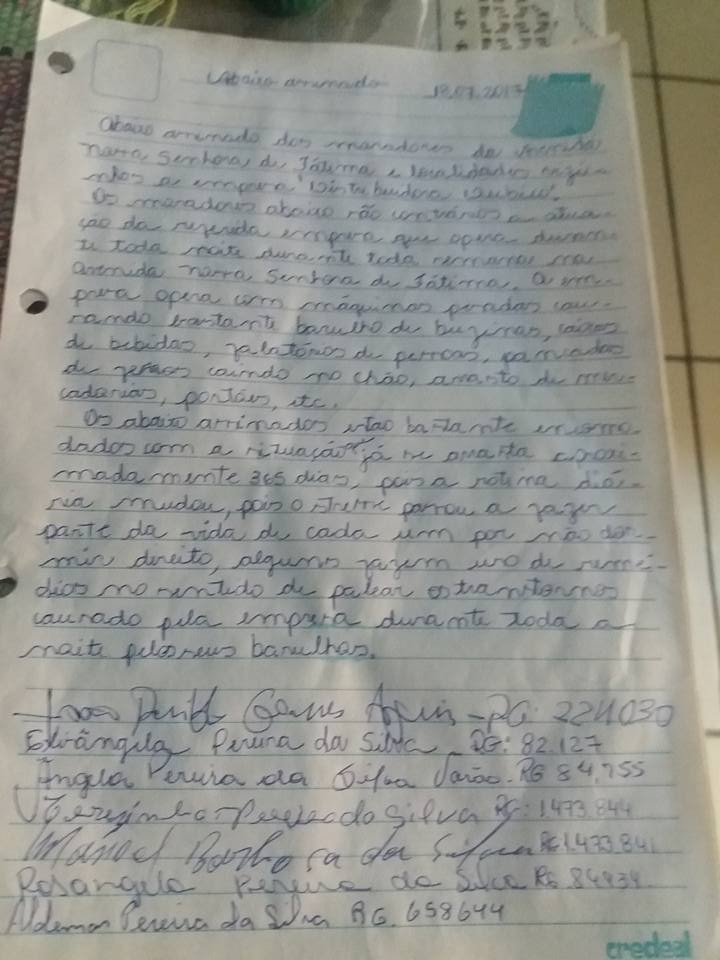 Abaixo arrinado 18.07.2017
Abaixo arrinado dos moradores da Avenida
Nossa Senhora de Fátima e localidades
a empresa Distribuidora
Os moradores abaixo são contrários a atua-
ção da referida empresa que opera duran-
te toda noite durante toda semana na
Avenida Nossa Senhora de Fátima. A em-
presa opera com máquinas pesadas cau-
sando bastante barulho de buzinas, caixas
de bebidas, falatórios de pessoas, pancadas
de ferros caindo no chão, arrasto de mer-
cadorias, portões, etc.
Os abaixo assinados estão bastante incomo-
dados com a situação já se arrasta aproxi-
madamente 365 dias, pois a rotina diá-
ria mudou, pois o stress passou a fazer
parte da vida de cada um por não dor-
mir direito, alguns fazem uso de remé-
dios no sentido de palear os transtornos
causado pela empresa durante toda a
noite pelos seus barulhos.
Gomes - RG: 224030
Elisângela Pereira da Silva RG: 82.127
Ângela Pereira da Silva Varão. RG 84.755
Terezinha Pereira da Silva RG: 1.473.844
Manoel Barbosa da Silva RG 1.473.841
Rosangela Pereira da Silva RG 84934
Aldemar Pereira da Silva RG. 658644
credeal